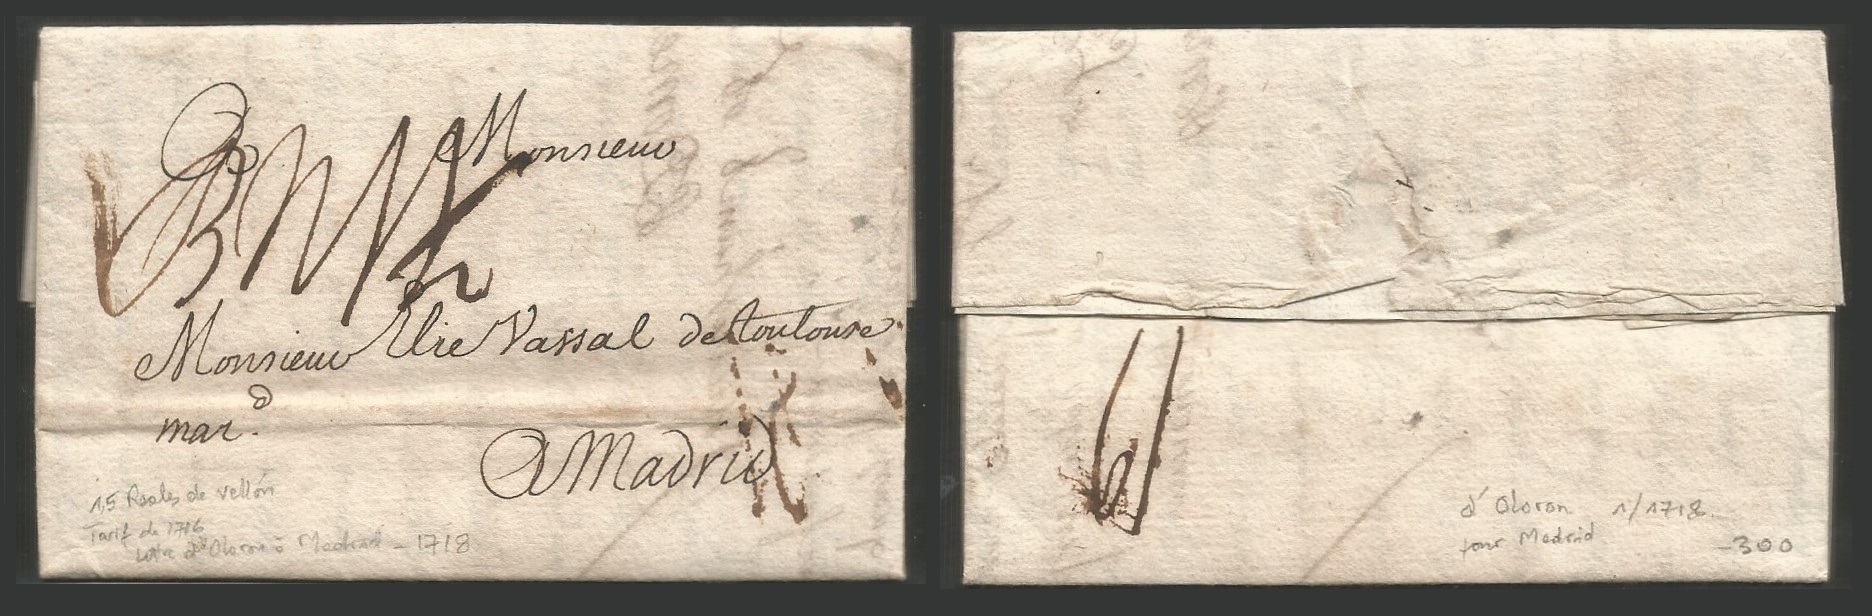 Monsieur
Monsieur Elie Vassal de toulouse
mar.d
A Madrid
1,5 Reales de vellón
Tarif de 1716
d'Oloron à Madrid - 1718
d'Oloron 1/1718.
pour Madrid
-300